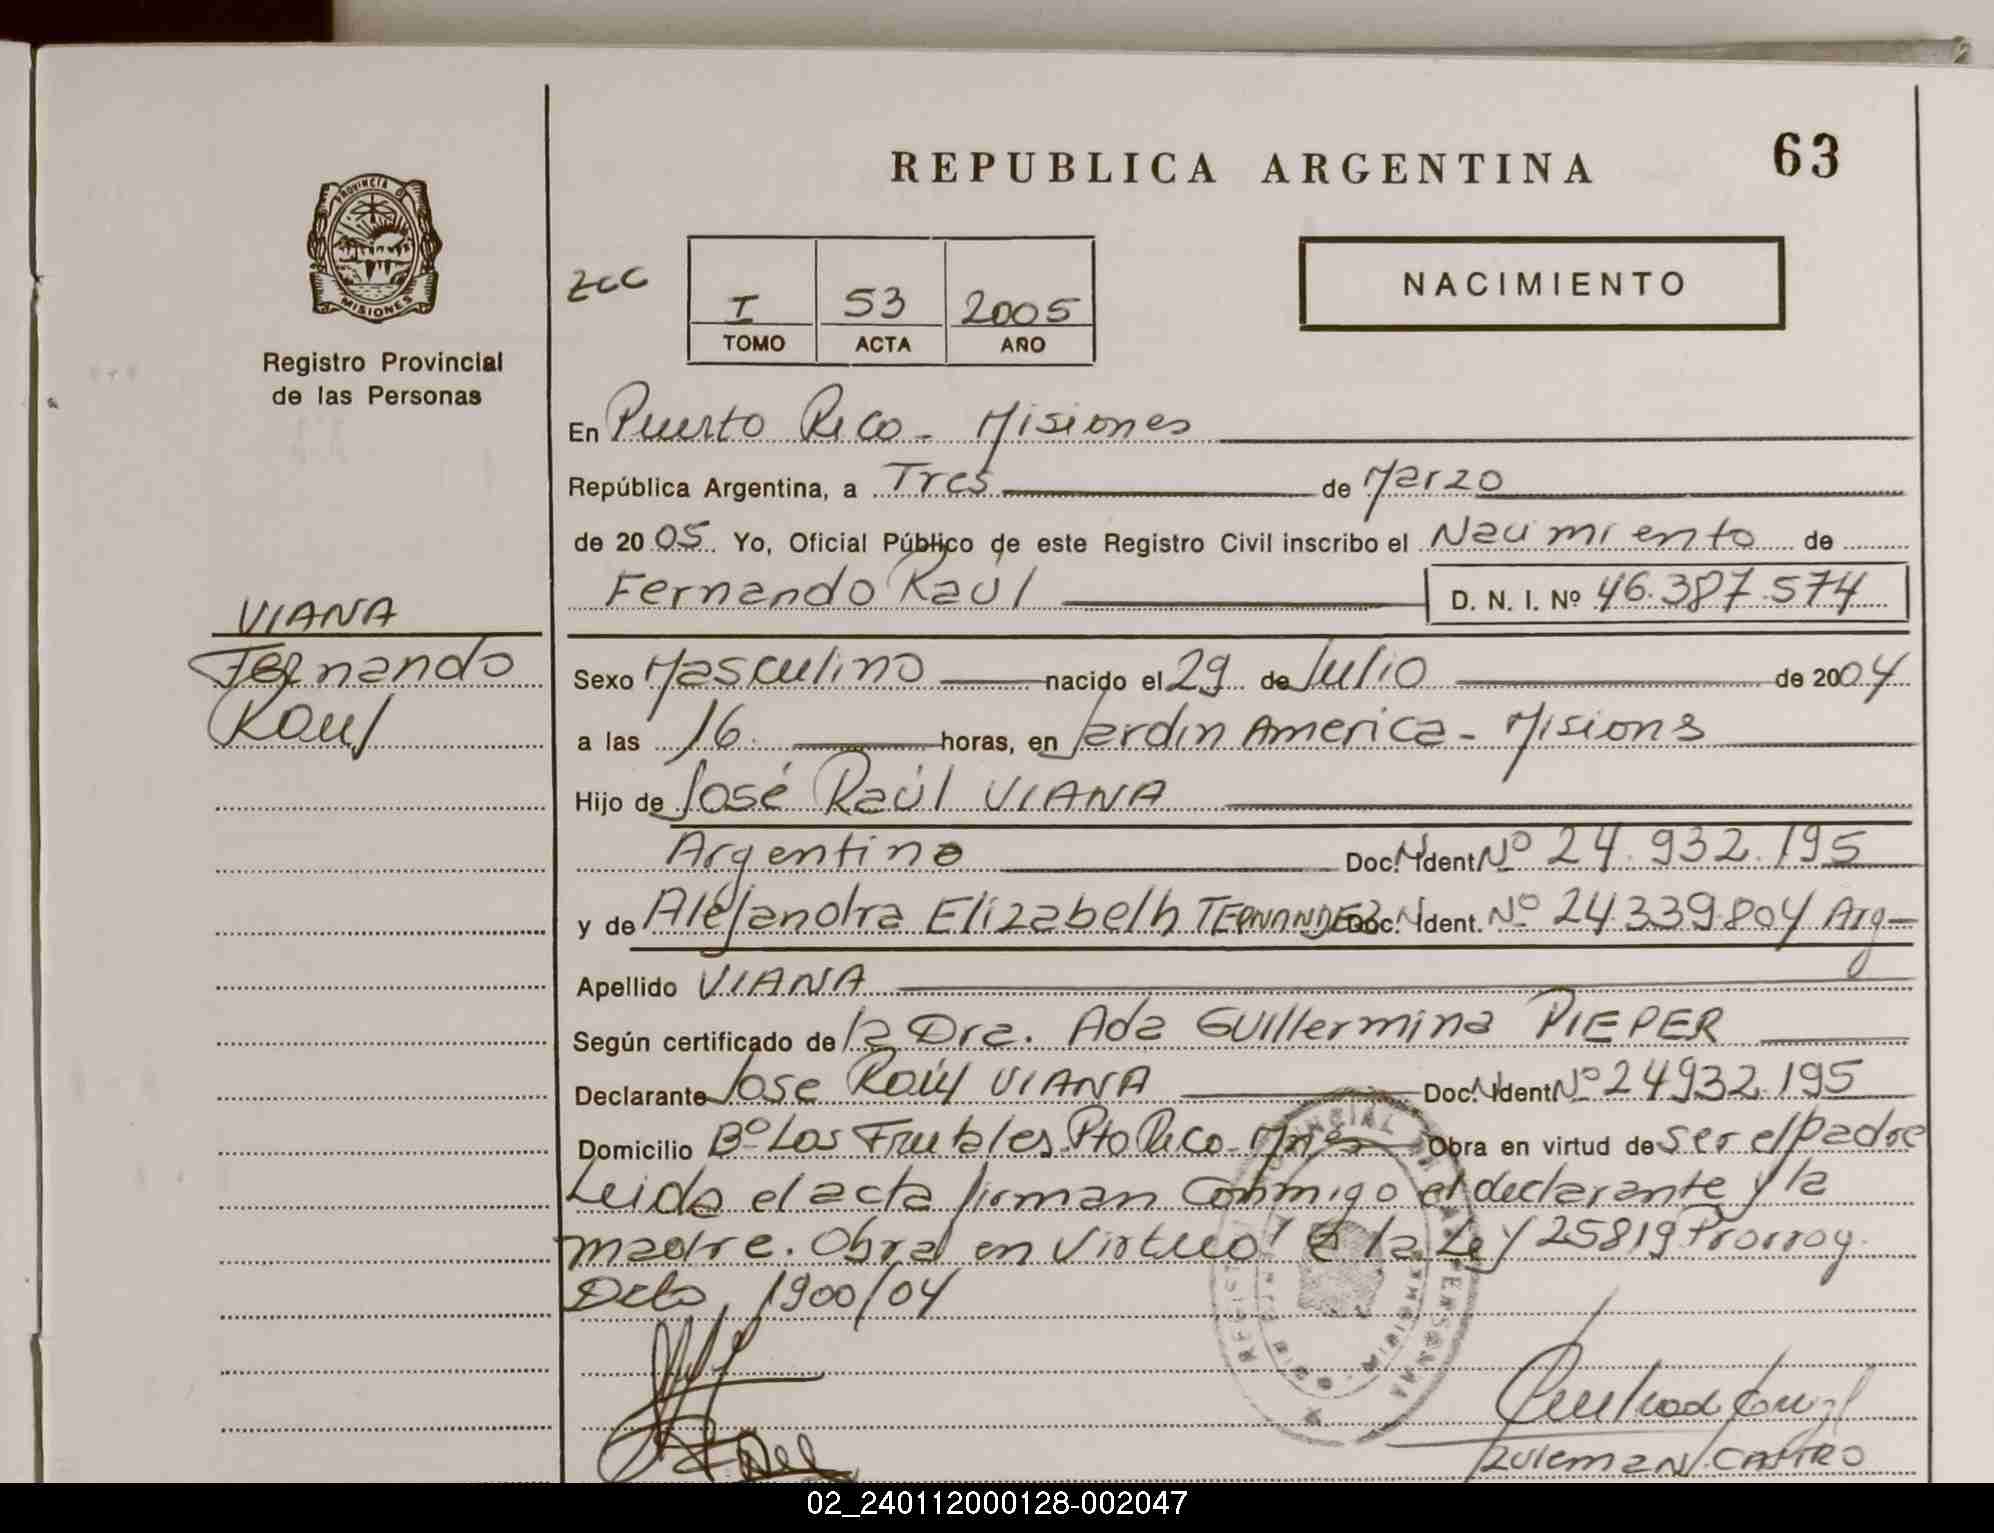 REPUBLICA ARGENTINA
63
PROVINCIA DE
MISIONES
Registro Provincial
de las Personas
zcc
I 53 2005
TOMO ACTA AÑO
NACIMIENTO
En Puerto Rico - Misiones
República Argentina, a Tres de Marzo
de 2005. Yo, Oficial Público de este Registro Civil inscribo el Nacimiento de
Fernando Raúl D. N. I. Nº 46.387.574
VIANA
Fernando
Raul
Sexo Masculino nacido el 29 de Julio de 2004
a las 16. horas, en Jardin America - Misions
Hijo de José Raúl VIANA
Argentino Doc. N. Ident Nº 24.932.195
y de Alejandra Elizabeth FERNANDEZ Doc. N Ident. Nº 24.339.804 Arg-
Apellido VIANA
Según certificado de la Dra. Ada Guillermina PIEPER
Declarante Jose Raúl VIANA Doc. N Ident Nº 24932.195
Domicilio Bº Los Frutales. Pto Rico - Mnes Obra en virtud de ser el padre
Leida el acta firman Conmigo el declarante y la
madre. Obra en Virtud de la Ley 25819 Prorrog.
Dcto, 1900/04
CASTRO
02_240112000128-002047